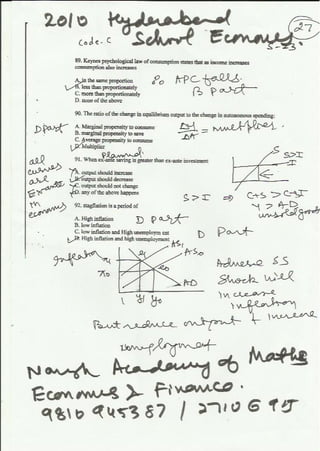 2010 Hyderabad
27
Code. C School Economics
S-23
89. Keynes psychological law of consumption states that as income increases
consumption also increases
A. in the same proportion
B. less than proportionately
C. more than proportionately
D. none of the above
% APC falls.
B Part
90. The ratio of the change in equilibrium output to the change in autonomous spending:
D part
A. Marginal propensity to consume
B. marginal propensity to save
C. Average propensity to consume
D. Multiplier
ΔY/ΔA = multiplier.
Planned
91. When ex-ante saving is greater than ex-ante investment
A. output should increase
B. output should decrease
C. output should not change
D. any of the above happens
all
curves
are
Exante
in
economics
S
S>I
I
S>I ⇒ C+S > C+I
Y > A-D
unsold goods
92. stagflation is a period of
A. High inflation
B. low inflation
C. low inflation and High unemployment
D. High inflation and high unemployment
D part
D Part
Inflation
AS1
AS0
e1
e0
π0
AD
Y1 Y0
Adverse SS
Shock will
increase
inflation
But reduce output & increase
unemployment
Naresh Academy of Maths
Economics & Finance.
9810945387 /